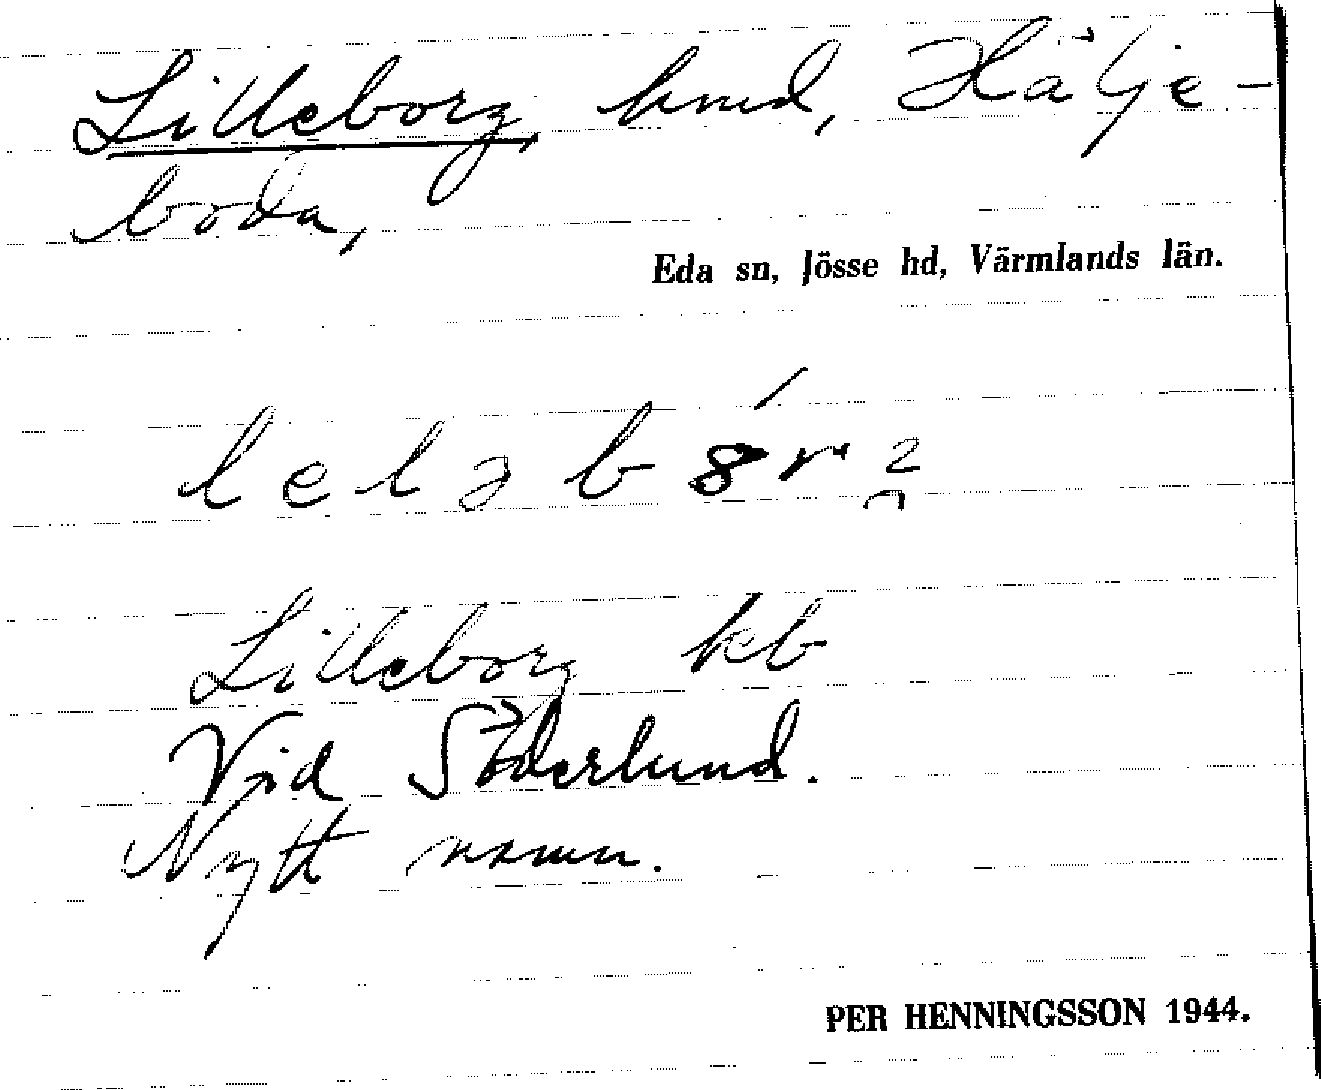 Lilleborg, hmd, Hälje-
boda,
Eda sn, Jösse hd, Värmlands län.
Lilleborg kb
Vid Söderlund.
Nytt namn.
PER HENNINGSSON 1944.